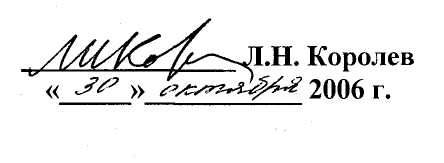 Л.Н. Королев
«30» октября 2006 г.